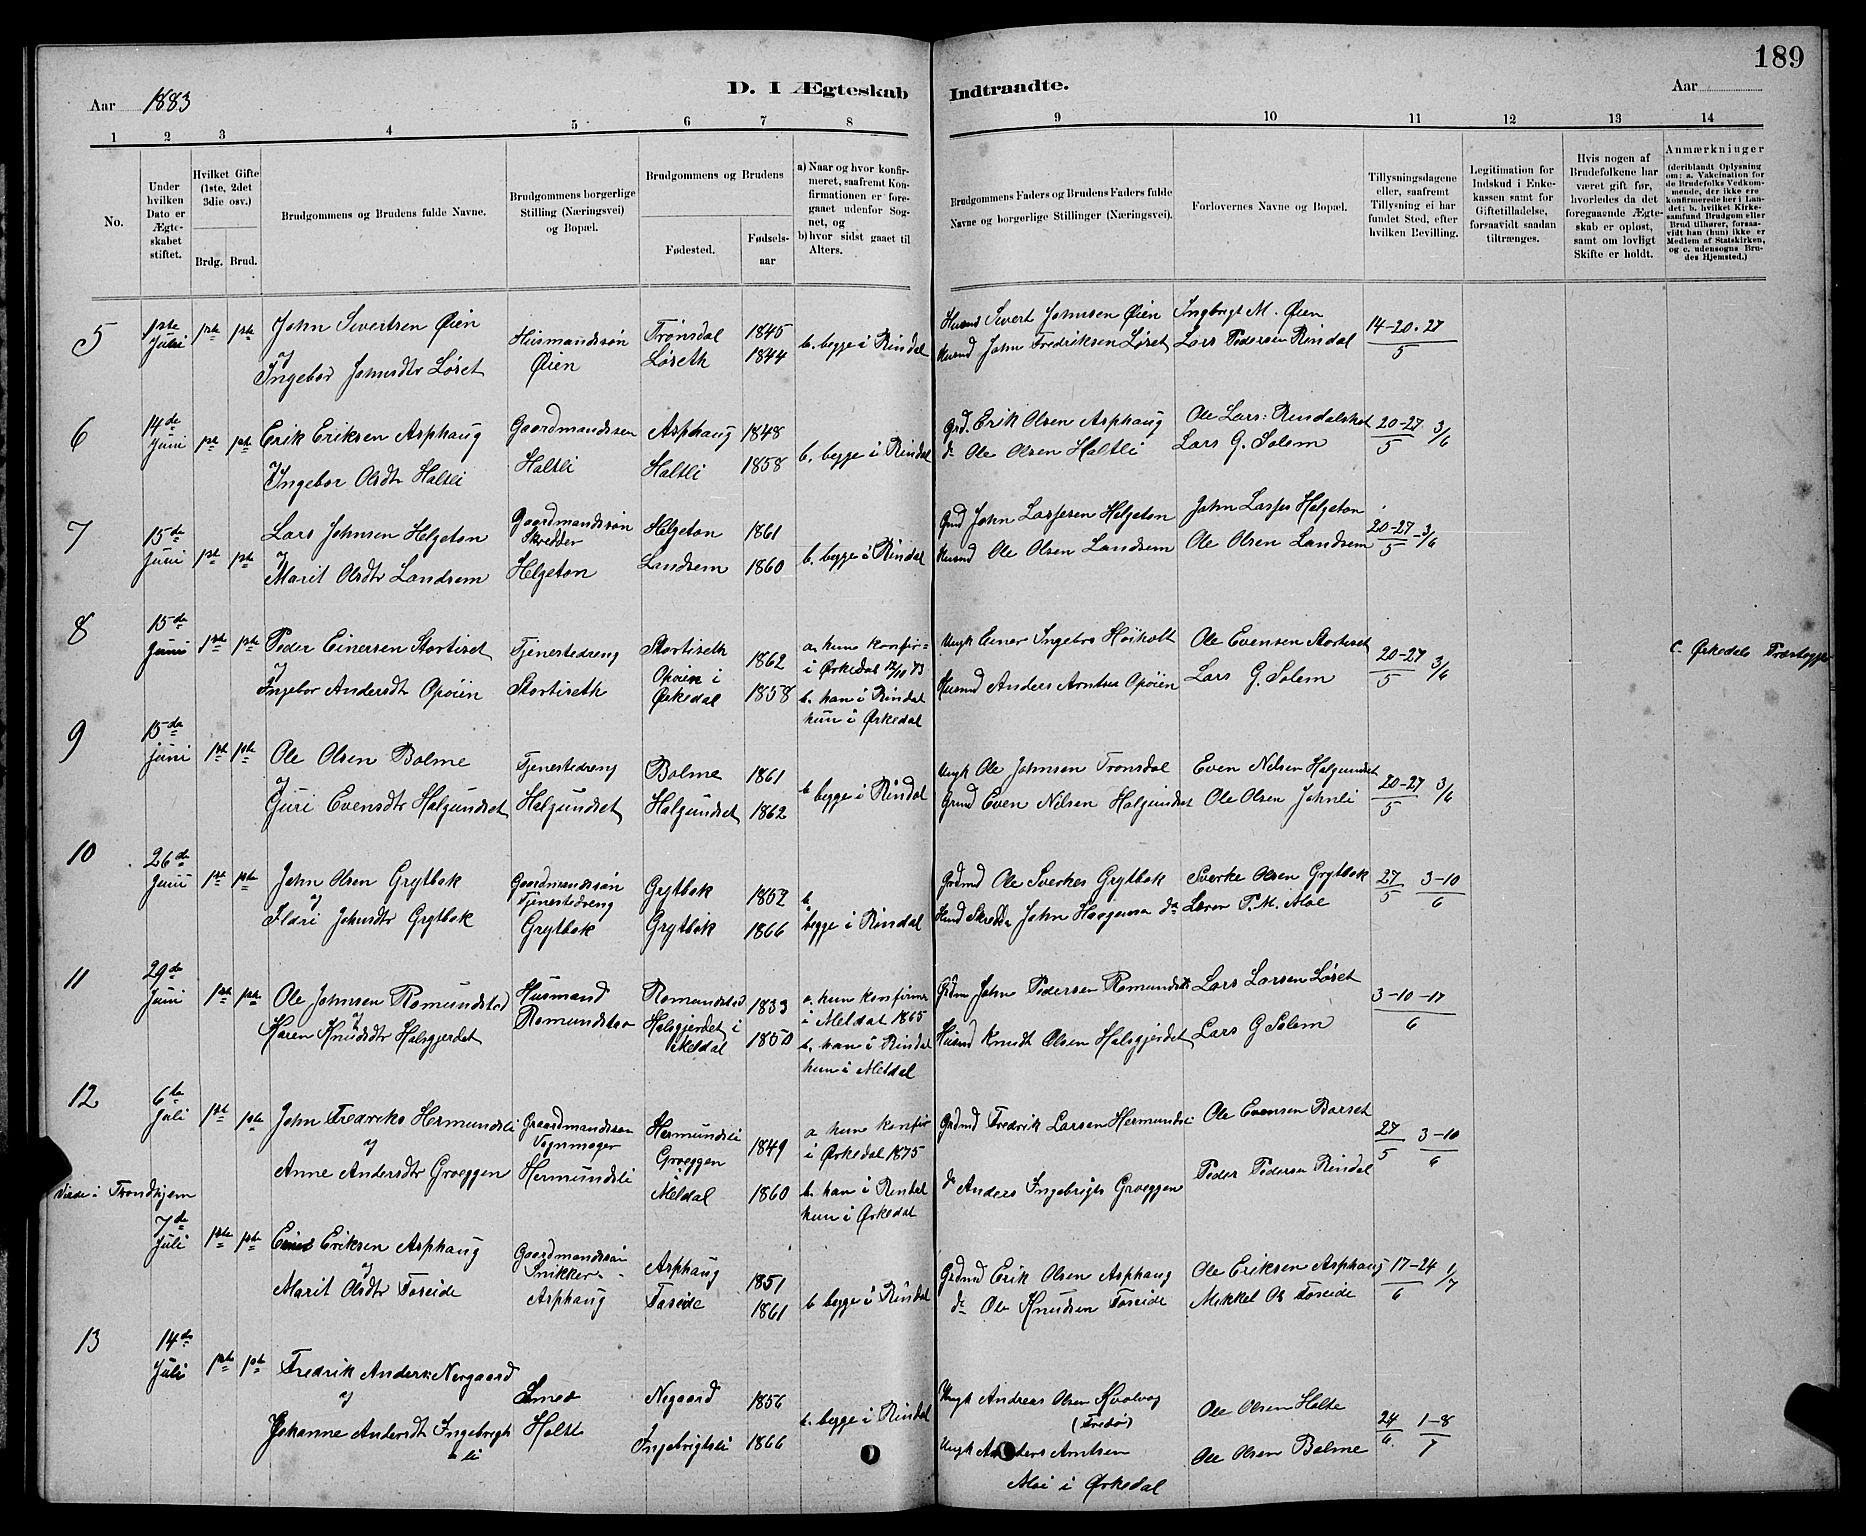 189
Aar 1883
D. I Ægteskab Indtraadte.
Aar
1 2 3 4 5 6 7 8 9 10 11 12 13 14
No.
Under hvilken Dato er Ægteskabet stiftet.
Hvilket Gifte (1ste, 2det 3die osv.)
Brdg. Brud.
Brudgommens og Brudens fulde Navne.
Brudgommens borgerlige Stilling (Næringsvei) og Bopæl.
Brudgommens og Brudens
Fødested. Fødselsaar
a) Naar og hvor konfirmeret, saafremt Konfirmationen er foregaaet udenfor Sognet, og
b) hvor sidst gaaet til Alters.
Brudgommens Faders og Brudens Faders fulde Navne og borgerlige Stillinger (Næringsvei).
Forlovernes Navne og Bopæl.
Tillysningsdagene eller, saafremt Tillysning ei har fundet Sted, efter hvilken Bevilling.
Legitimation for Indskud i Enkekassen samt for Giftetilladelse, forsaavidt saadan tiltrænges.
Hvis nogen af Brudefolkene har været gift før, hvorledes da det foregaaende Ægteskab er opløst, samt om lovligt Skifte er holdt.
Anmærkninger
(deriblandt Oplysning om: a. Vakcination for de Brudefolks Vedkommende, der ikke ere konfirmerede her i Landet; b. hvilket Kirkesamfund Brudgom eller Brud tilhører, forsaavidt han (hun) ikke er Medlem af Statskirken, og c. udensogns Brudes Hjemsted.)
5 1ste Juli 1ste 1ste John Sivertsen Øien Husmandssøn Trønsdal 1845 b. begge i Rindal Husmd Sivert Johnsen Øien Ingbrigt M. Øien 14-20.27
og Ingebor Johnsdtr Løset Øien Løseth 1844 Husmd John Fredriksen Løset Lars Pedersen Rindal 5
6 14de Juni 1ste 1ste Erik Eriksen Asphaug Gaardmandssøn Asphaug 1848 b. begge i Rindal Grd. Erik Olsen Asphaug Ole Lars: Rindalshot 20-27 3/6
og Ingebor Olsdtr Haltli Haltli Haltli 1858 do Ole Olsen Haltli Lars G. Solem 5
7 15de Juni 1ste 1ste Lars Johnsen Helgeton Gaardmandssøn Skredder Helgeton 1861 b. begge i Rindal Grmd John Larssen Helgeton John Larsen Helgeton 20-27 - 3/6
og Marit Olsdtr Landsem Helgeton Landsem 1860 Husmd Ole Olsen Landsem Ole Olsen Landsem 5
8 15de Juni 1ste 1ste Peder Einersen Stortiset Tjenestedreng Stortiseth 1862 a. hun konfir= i Ørkedal 12/10 73 Ungk Einer Ingebrs Høiholt Ole Evensen Stortiset 20-27 3/6 c. Ørkedals Præstegjæl
og Ingebor Andersdt Opøien Stortiseth Opøien i Ørkedal 1858 b. han i Rindal hun i Ørkedal Husmd Anders Arntsen Opøien Lars G. Solem 5
9 15de Juni 1ste 1ste Ole Olsen Bolme Tjenestedreng Bolme 1861 b begge i Rindal Ungk Ole Johnsen Tronsdal Even Nilsen Halgundset 20-27 3/6
og Guri Evensdtr Halgundset Halgundset Halgundset 1862 Grmd Even Nilsen Halgundset Ole Olsen Johnli 5
10 26de Juni 1ste 1ste John Olsen Grytbak Gaardmandssøn Tjenestedreng Grytbak 1852 b. Grdmd Ole Sverkes Grytbak Sverke Olsen Grytbak 27/5 3-10
og Ildri Johnsdtr Grytbak Grytbak Grytbak 1866 begge i Rindal Husmd Skredder John Haagensen do Loren P. M. Moe 6
11 29de Juni 1ste 1ste Ole Johnsen Romundstad Husmand Romundstad 1833 a. hun konfirm i Meldal 1865 Grdm John Pedersen Romundst. Lars Larsen Løset 3-10-17
og Karen Knudsdtr Halsgjerdet Romundstad Halsgjerdet i Meldal 1850 b. han i Rindal hun i Meldal Husmd Knudt Olsen Halsgjerdet Lars G Solem 6
12 6te Juli 1ste 1ste John Fredriks Hermundsli Gaardmandssøn Vognmager Hermundsli 1849 a hun konfir i Ørkedal 1875 Grdmd Fredrik Larsen Hermundsli Ole Evensen Barset 27/5 3-10
og Anne Andersdtr Groeggen Hermundsli Groeggen i Meldal 1860 b. han i Rindal hun i Ørkedal do Anders Ingebrigts Groeggen Peder Pedersen Rindal 6
viede i Trondhjem
7de Juli 1ste 1ste Einer Eriksen Asphaug Gaardmandssøn Snikker Asphaug 1851 b begge i Rindal Grdmd Erik Olsen Asphaug Ole Eriksen Asphaug 17-24 1/7
og Marit Olsdtr Foseide Asphaug Foseide 1861 do Ole Knudsen Foseide Mikkel Os Foseide 6
13 14de Juli 1ste 1ste Fredrik Anders: Nergaard Smed Negaard 1856 b. begge i Rindal Ungk Andreas Olsen Kvalvag (Fredø) Ole Olsen Holte 24/6. 1-8
og Johanne Andersdt Ingebrigtsli Holte Ingebrigtsli 1866 Ungk Anders Arntsen Moi i Ørkedal Ole Olsen Bolme 7